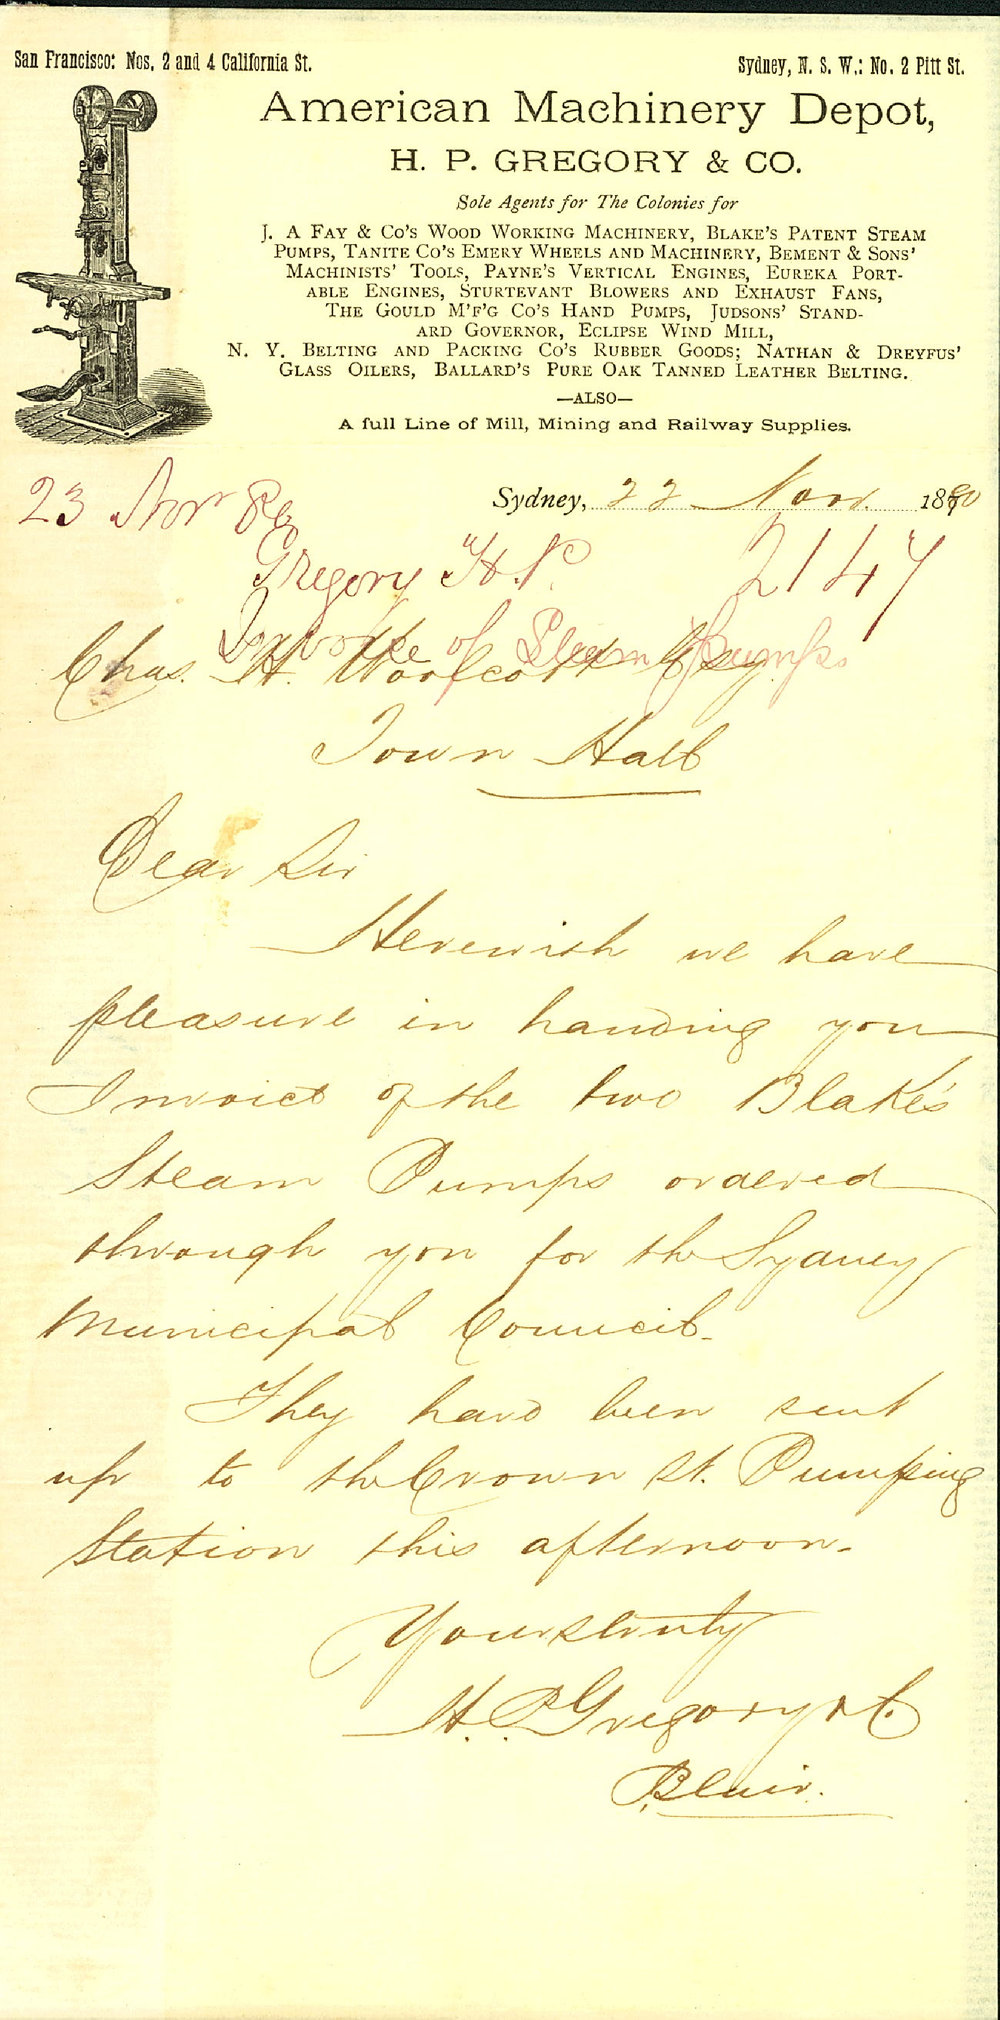 San Francisco: Nos. 2 and 4 California St.
Sydney, N. S. W.: No. 2 Pitt St.
American Machinery Depot,
H. P. GREGORY & CO.
Sole Agents for The Colonies for
J. A FAY & CO'S WOOD WORKING MACHINERY, BLAKE'S PATENT STEAM
PUMPS, TANITE CO'S EMERY WHEELS AND MACHINERY, BEMENT & SONS'
MACHINISTS' TOOLS, PAYNE'S VERTICAL ENGINES, EUREKA PORT-
ABLE ENGINES, STURTEVANT BLOWERS AND EXHAUST FANS,
THE GOULD M'F'G CO'S HAND PUMPS, JUDSONS' STAND-
ARD GOVERNOR, ECLIPSE WIND MILL,
N. Y. BELTING AND PACKING CO'S RUBBER GOODS; NATHAN & DREYFUS'
GLASS OILERS, BALLARD'S PURE OAK TANNED LEATHER BELTING.
—ALSO—
A full Line of Mill, Mining and Railway Supplies.
Sydney, 22 Nov. 1880
23 Nov 80
Gregory H.P. 2147
Invoice of Steam Pumps
Chas. H. Woolcott Esq.
Town Hall
Dear Sir
Herewith we have
pleasure in handing you
Invoice of the two Blake's
Steam Pumps ordered
through you for the Sydney
Municipal Council.
They have been sent
up to the Crown St. Pumping
Station this afternoon.
Yours truly
H. P. Gregory & C.
Blair.